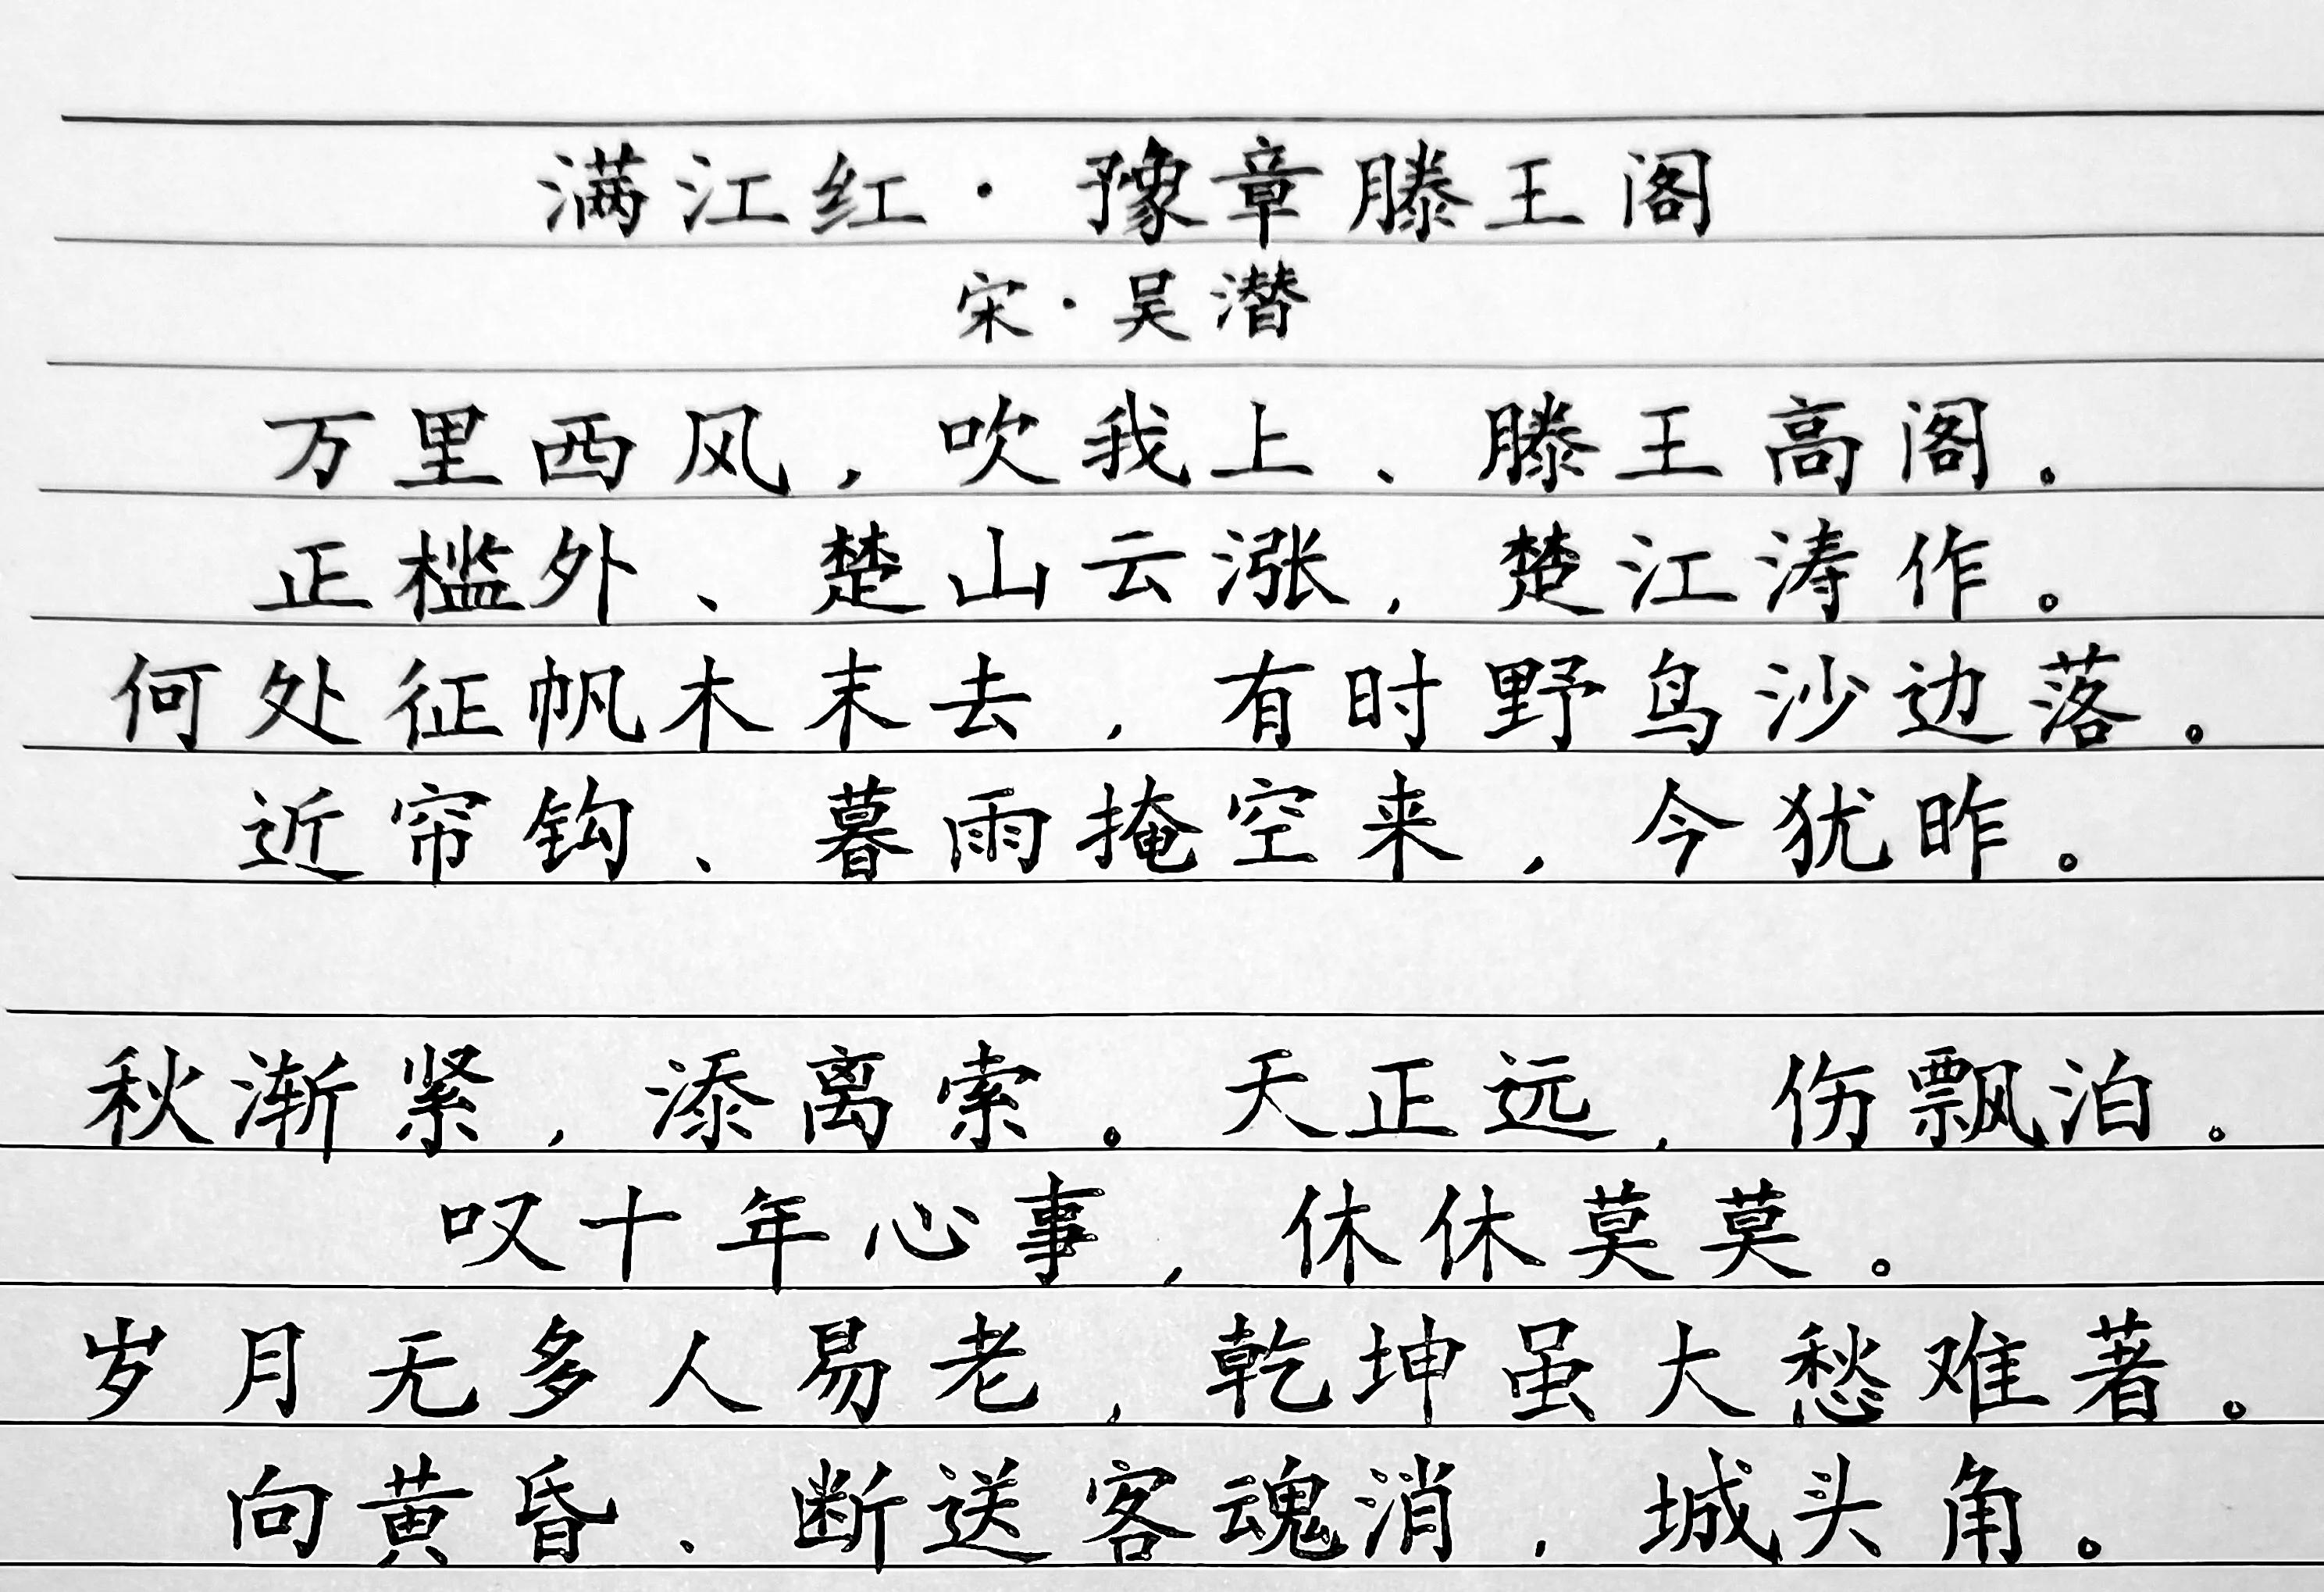 满江红·豫章滕王阁
宋·吴潜
万里西风，吹我上、滕王高阁。
正槛外、楚山云涨，楚江涛作。
何处征帆木末去，有时野鸟沙边落。
近帘钩、暮雨掩空来，今犹昨。
秋渐紧，添离索。天正远，伤飘泊。
叹十年心事，休休莫莫。
岁月无多人易老，乾坤虽大愁难著。
向黄昏、断送客魂消，城头角。